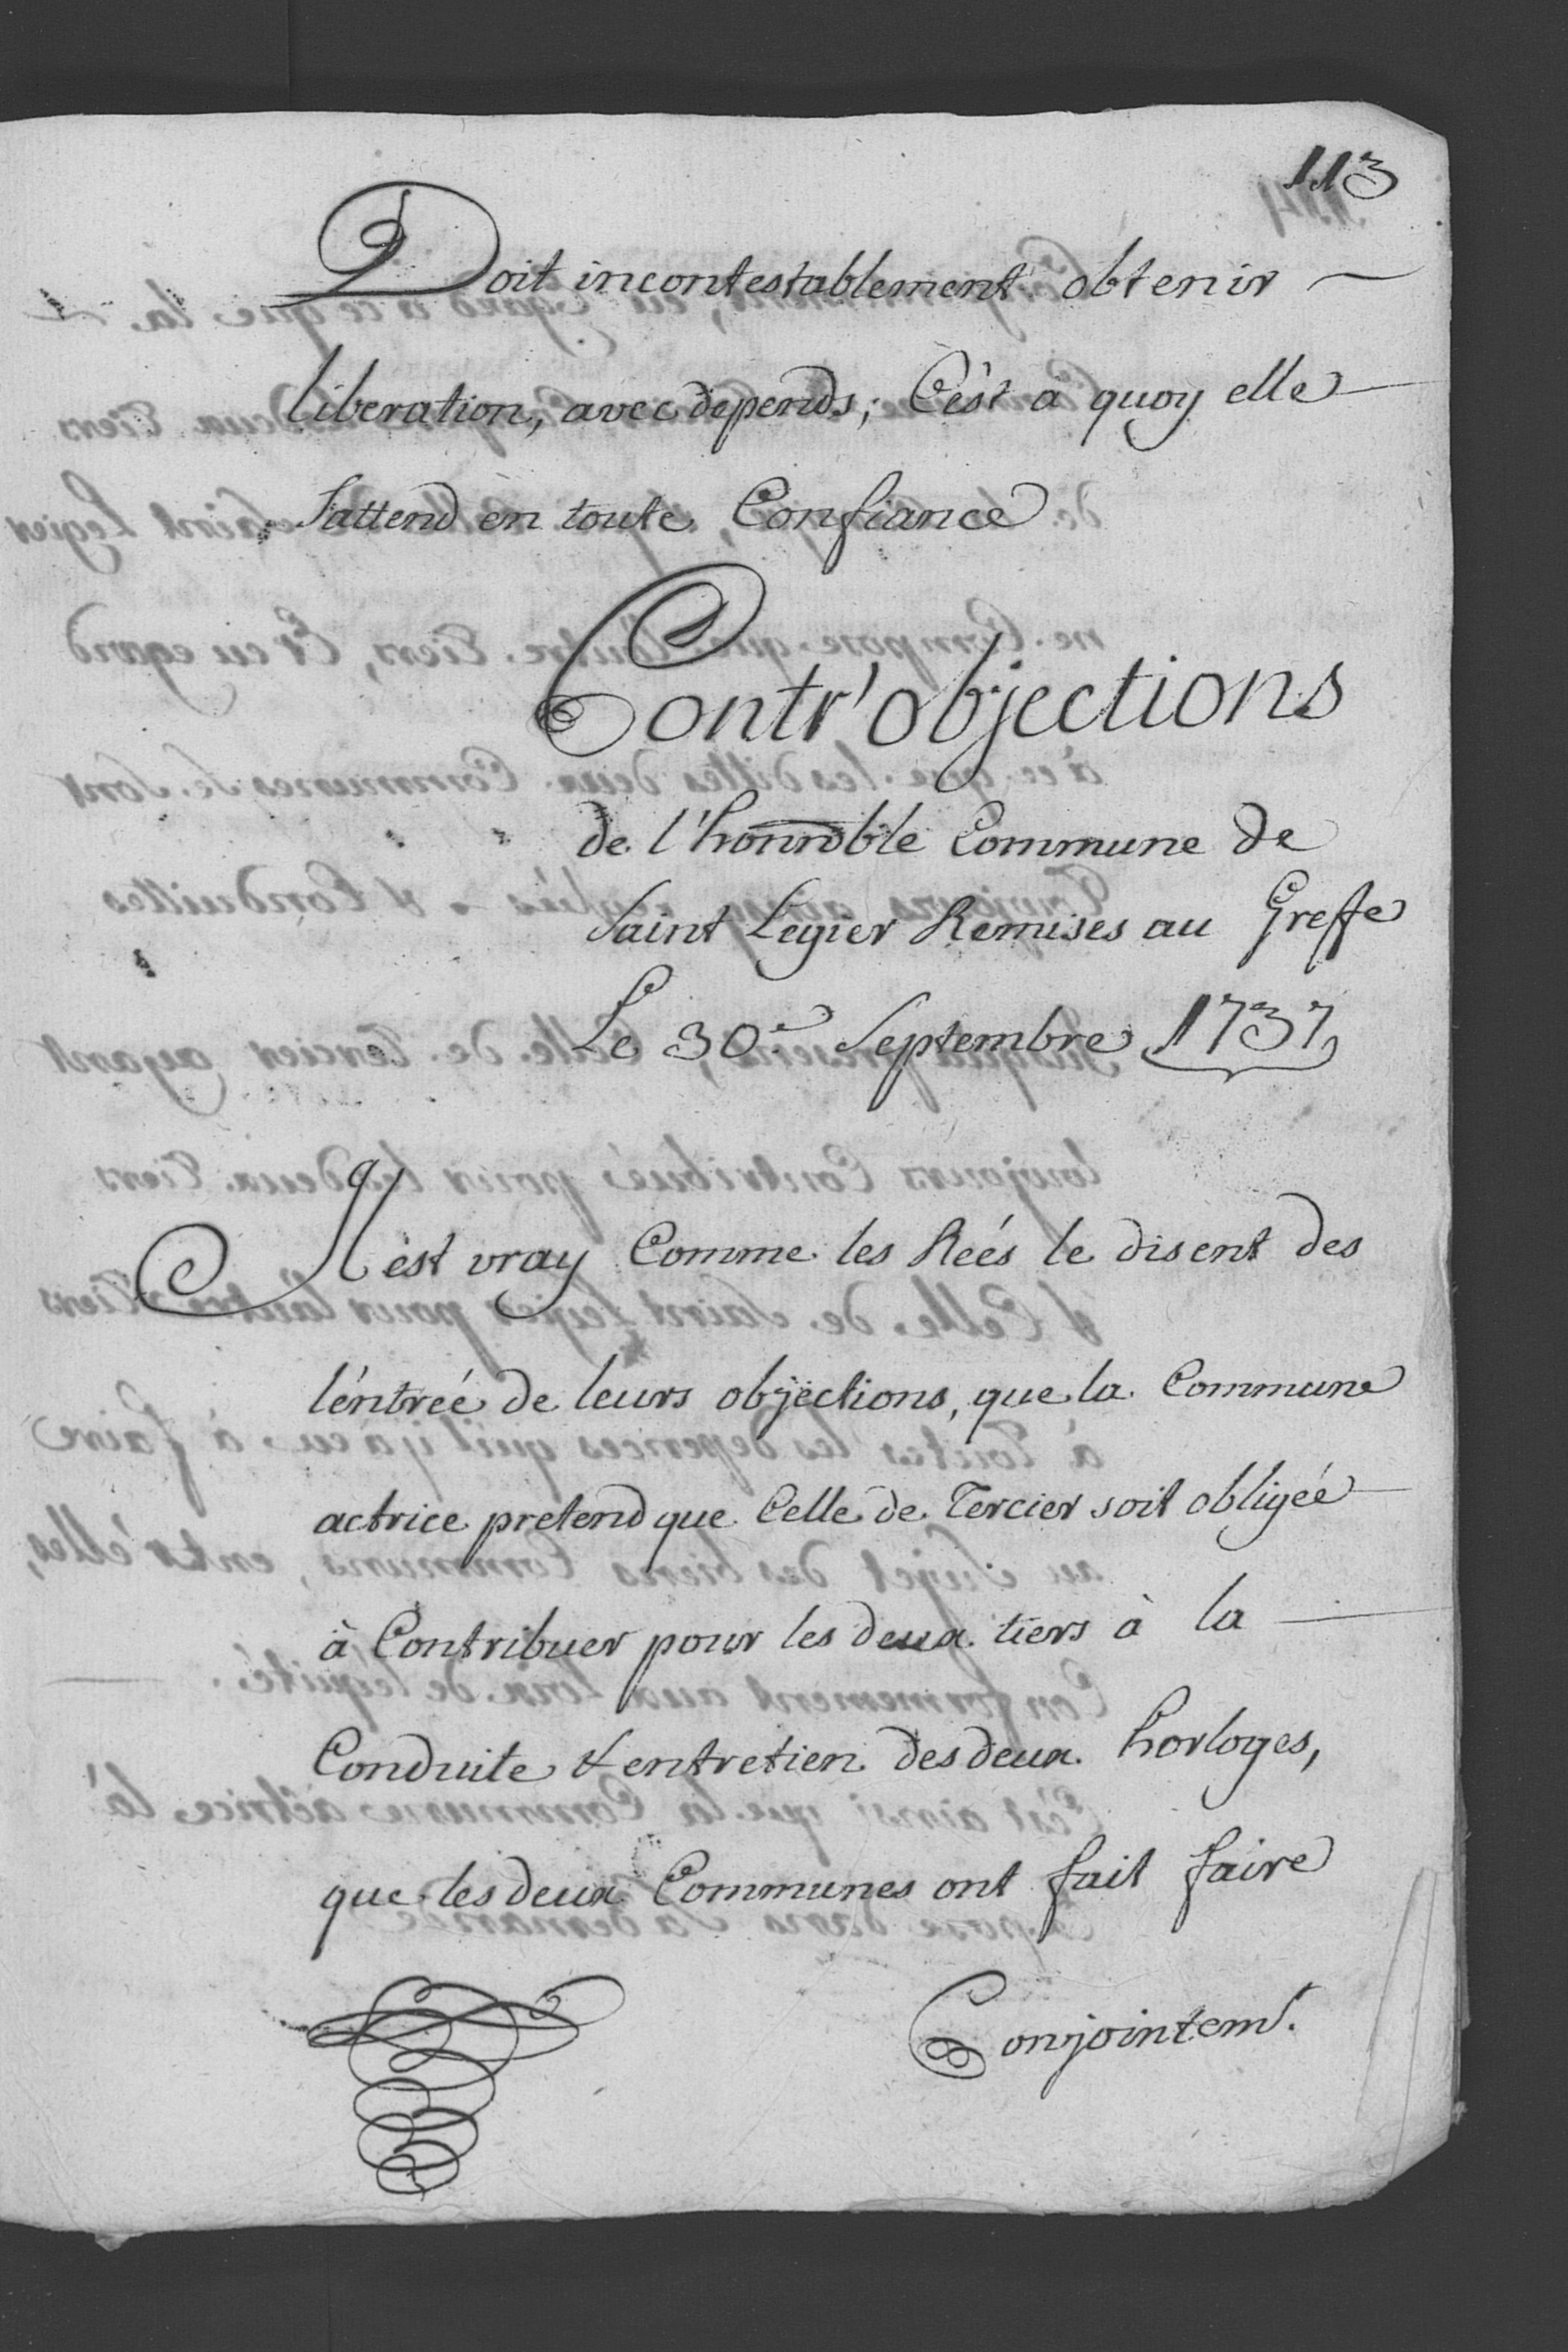 113
Doit incontestablement obtenir
liberation, avec depends; C'est a quoy elle
S'attend en toute Confiance
Contr'objections
de l'honnoble Commune de
Saint Legier Remises au Greffe
Le 30.e Septembre 1737
Il est vray Comme les Reés le disent des
l'éntreé de leurs objections, que la Commune
actrice pretend que Celle de Tercier soit obligée
à Contribuer pour les deux tiers à la
Conduite & entretien des deux horloges,
que les deux Communes ont fait faire
Conjointemt.